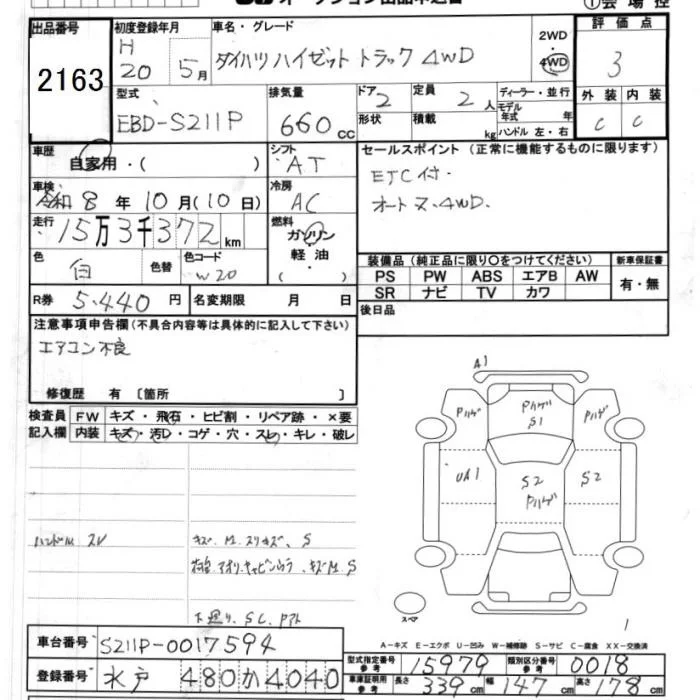 ①会場控
出品番号
2163
初度登録年月
H
20 5月
車名・グレード
ダイハツ ハイゼット トラック 4WD
2WD
・
4WD
評価点
3
外装 内装
C C
型式
EBD-S211P
排気量
660cc
ドア 2
形状
定員 2人
積載 kg
ディーラー・並行
モデル年式 年式
ハンドル 左・右
車歴
自家用・( )
シフト
AT
車検
令和8年10月(10日)
冷房
AC
走行
15万3千372km
燃料
ガソリン
軽油
( )
色
白
色替
色コード
W20
R券 5.440円
名変期限 月 日
セールスポイント (正常に機能するものに限ります)
ETC付.
オートマ.4WD.
装備品 (純正品に限り○をつけてください)
PS PW ABS エアB AW
SR ナビ TV カワ
新車保証書
有・無
後日品
注意事項申告欄(不具合内容等は具体的に記入して下さい)
エアコン不良
修復歴 有〔箇所 〕
検査員記入欄
FW キズ・飛石・ヒビ割・リペア跡・×要
内装 キズ・汚れ・コゲ・穴・スレ・キレ・破レ
ハンドル スレ
キズ、M、スリキズ、S
キズM.S
下廻り、S
A1
Pハゲ
Pハゲ
S1
Pハゲ
UA1
S2
Pハゲ
S2
スペア
1
A-キズ E-エクボ U-凹み W-補修跡 S-サビ C-腐食 XX-交換済
車台番号 S211P-0017594
登録番号 水戸 480か4040
型式指定番号 参考 15979
類別区分番号 参考 0018
車庫証明用 参考 長さ 339cm 幅 147cm 高さ 178cm